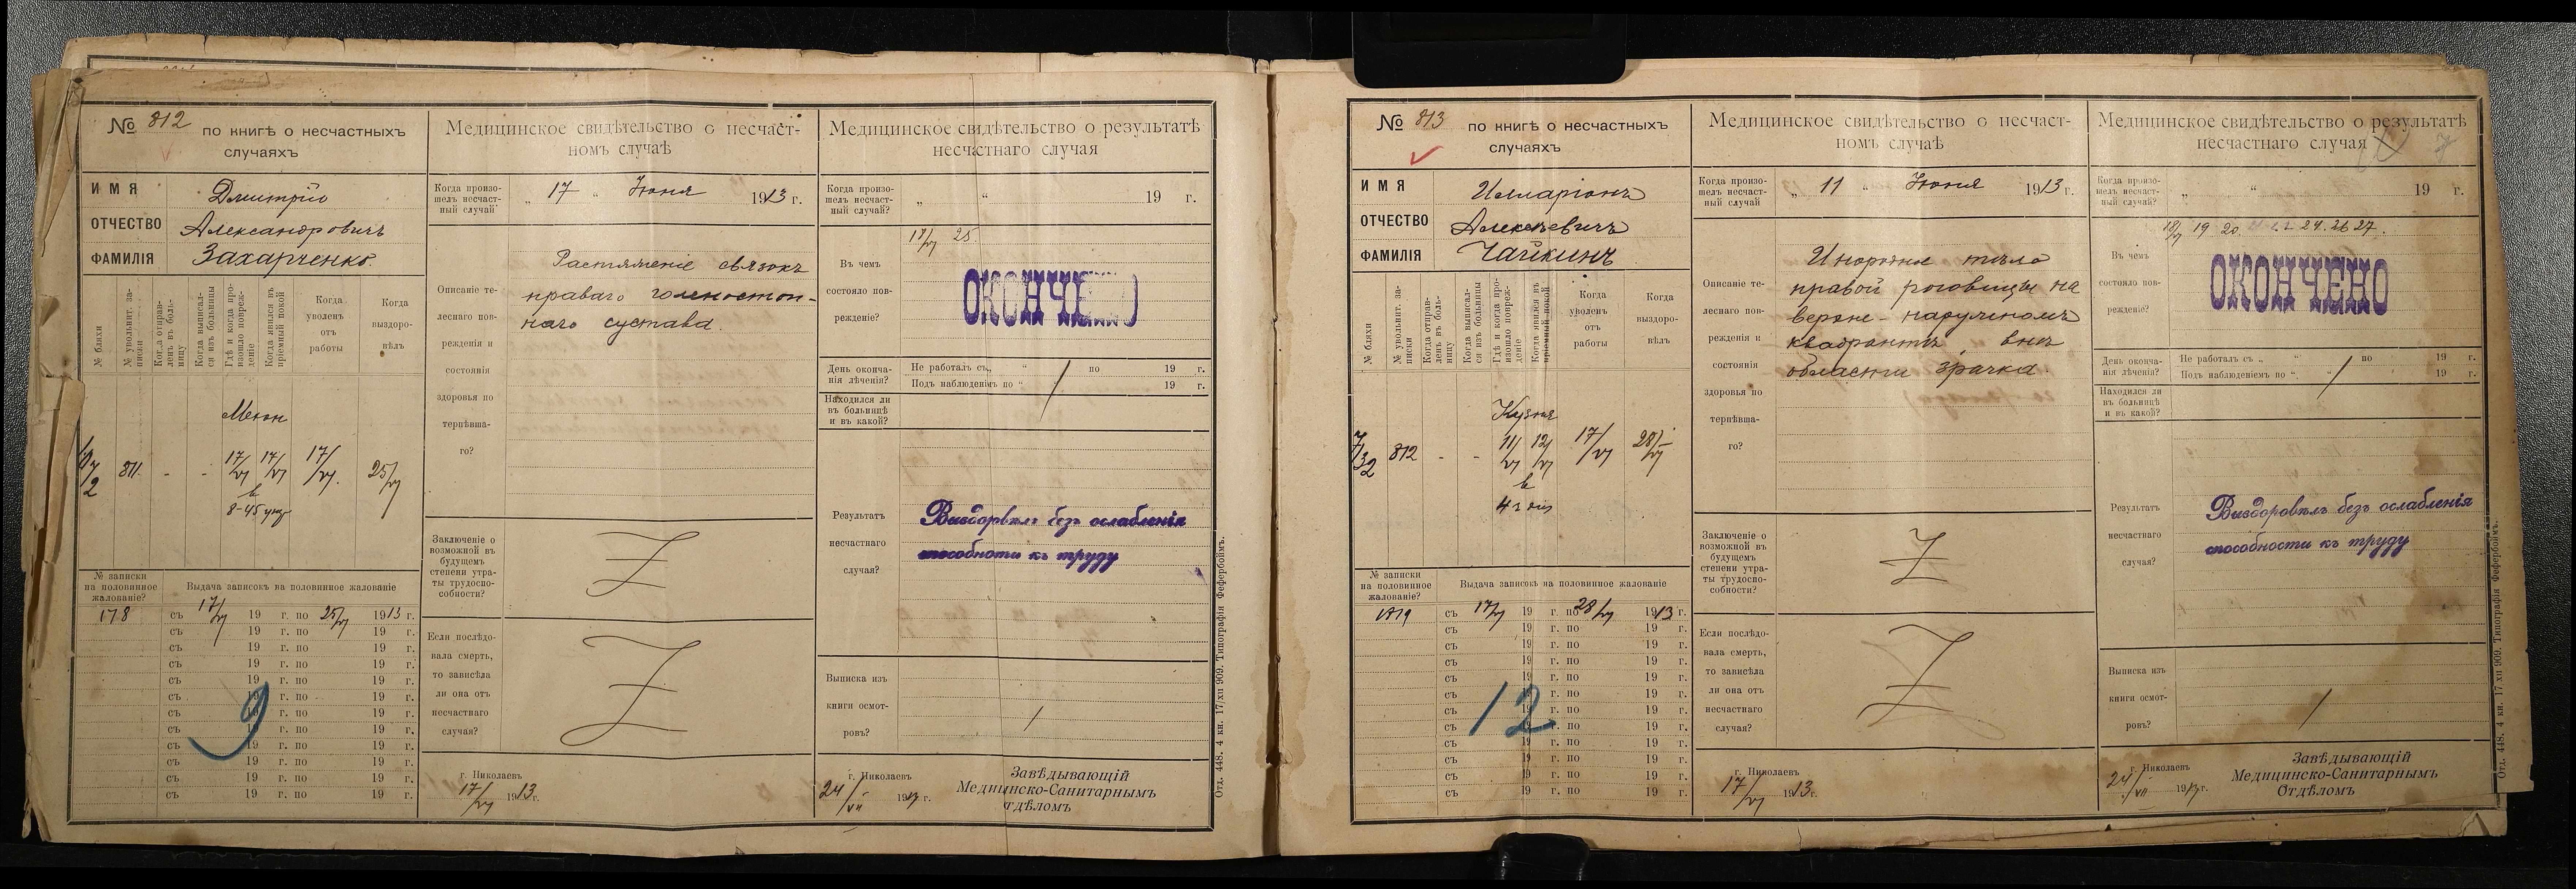 № 812 по книгѣ о несчастныхъ
случаяхъ
ИМЯ Дмитрій
ОТЧЕСТВО Александровичъ
ФАМИЛІЯ Захарченко.
№ бляхи
№ увольнит. записки
Когда отправленъ въ больницу
Когда выписался изъ больницы
Гдѣ и когда произошло поврежденіе
Когда явился въ пріемный покой
Когда
уволенъ
отъ
работы
Когда
выздоро-
вѣлъ
811. - - 17/VI 17/VI 17/VI. 25/VI
в
8-45 утр
№ записки
на половинное
жалованіе?
Выдача записокъ на половинное жалованіе
178 съ 17/VI 19 г. по 25/VI 1913 г.
съ 19 г. по 19 г.
съ 19 г. по 19 г.
съ 19 г. по 19 г.
съ 19 г. по 19 г.
съ 19 г. по 19 г.
съ 19 г. по 19 г.
съ 19 г. по 19 г.
съ 19 г. по 19 г.
съ 19 г. по 19 г.
съ 19 г. по 19 г.
съ 19 г. по 19 г.
9
Медицинское свидѣтельство о несчаст-
номъ случаѣ
Когда произо-
шелъ несчаст-
ный случай
„ 17 “ Іюня 1913 г.
Описаніе те-
леснаго пов-
режденія и
состоянія
здоровья по
терпѣвша-
го?
Растяженіе связокъ
праваго голеностоп-
наго сустава.
Заключеніе о
возможной въ
будущемъ
степени утра-
ты трудоспо-
собности?
Z
Если послѣдо-
вала смерть,
то зависѣла
ли она отъ
несчастнаго
случая?
Z
г. Николаевъ
17/VI 1913 г.
Медицинское свидѣтельство о результатѣ
несчастнаго случая
Когда произо-
шелъ несчаст-
ный случай?
„ “ 19 г.
17/VI 25.
Въ чемъ
состояло пов-
режденіе?
ОКОНЧЕНО
День оконча-
нія лѣченія?
Не работалъ съ „ “ по 19 г.
Подъ наблюденіемъ по “ 19 г.
Находился ли
въ больницѣ
и въ какой?
Результатъ
несчастнаго
случая?
Выздоровѣлъ безъ ослабленія
способности къ труду
Выписка изъ
книги осмот-
ровъ?
г. Николаевъ
24/VII 1913 г.
Завѣдывающій
Медицинско-Санитарнымъ
Отдѣломъ
Отд. 448. 4 кн. 17/хп 909. Типографія Фефербоймъ.
№ 813 по книгѣ о несчастныхъ
случаяхъ
ИМЯ Илларіонъ
ОТЧЕСТВО Алексѣевичъ
ФАМИЛІЯ Чайкинъ
№ бляхи
№ увольнит. записки
Когда отправленъ въ больницу
Когда выписался изъ больницы
Гдѣ и когда произошло поврежденіе
Когда явился въ пріемный покой
Когда
уволенъ
отъ
работы
Когда
выздоро-
вѣлъ
Кузня
812 - - 11/VI 12/VI 17/VI 28/VI
в
№ записки
на половинное
жалованіе?
Выдача записокъ на половинное жалованіе
съ 17/VI 19 г. по 28/VI 1913 г.
съ 19 г. по 19 г.
съ 19 г. по 19 г.
съ 19 г. по 19 г.
съ 19 г. по 19 г.
съ 19 г. по 19 г.
съ 19 г. по 19 г.
съ 19 г. по 19 г.
съ 19 г. по 19 г.
съ 19 г. по 19 г.
съ 19 г. по 19 г.
съ 19 г. по 19 г.
12
Медицинское свидѣтельство о несчаст-
номъ случаѣ
Когда произо-
шелъ несчаст-
ный случай
„ 11 “ Іюня 1913 г.
Описаніе те-
леснаго пов-
режденія и
состоянія
здоровья по
терпѣвша-
го?
Инородное тѣло
правой роговицы на
верхне-наружномъ
квадрантѣ, внѣ
области зрачка.
Заключеніе о
возможной въ
будущемъ
степени утра-
ты трудоспо-
собности?
Z
Если послѣдо-
вала смерть,
то зависѣла
ли она отъ
несчастнаго
случая?
Z
г. Николаевъ
17/VI 1913 г.
Медицинское свидѣтельство о результатѣ
несчастнаго случая
7
Когда произо-
шелъ несчаст-
ный случай?
„ “ 19 г.
18/VI 19 20 24. 26 27.
Въ чемъ
состояло пов-
режденіе?
ОКОНЧЕНО
День оконча-
нія лѣченія?
Не работалъ съ „ “ по 19 г.
Подъ наблюденіемъ по “ 19 г.
Находился ли
въ больницѣ
и въ какой?
Результатъ
несчастнаго
случая?
Выздоровѣлъ безъ ослабленія
способности къ труду
Выписка изъ
книги осмот-
ровъ?
г. Николаевъ
24/VII 1913 г.
Завѣдывающій
Медицинско-Санитарнымъ
Отдѣломъ
Отд. 448. 4 кн. 17/хп 909. Типографія Фефербоймъ.